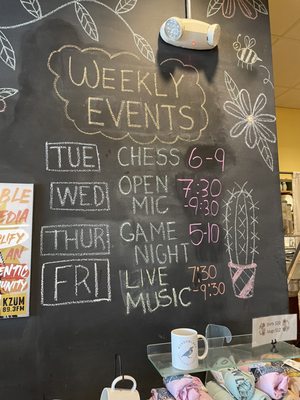 WEEKLY
EVENTS
TUE CHESS 6-9
WED OPEN MIC 7:30 -9:30
THUR GAME NIGHT 5-10
FRI LIVE MUSIC 7:30 -9:30
KZUM
89.3FM